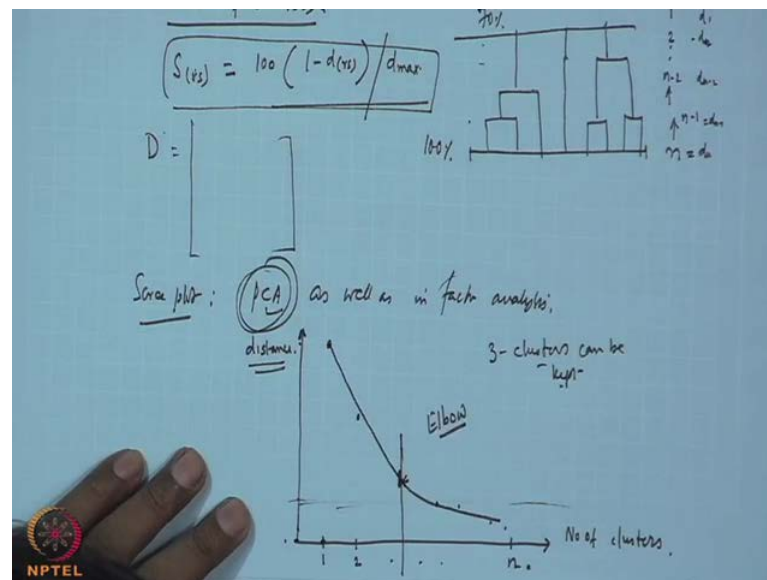 S(rs) = 100 ( 1 - d(rs) ) / dmax
70%
1 d1
2 - d2
n-2 dn-2
n-1 = dn-1
n = dn
100%
D =
Scree plot : PCA as well as in factor analysis,
distance.
3 - clusters can be
kept
Elbow
1 2 . . . n.
No of clusters.
NPTEL